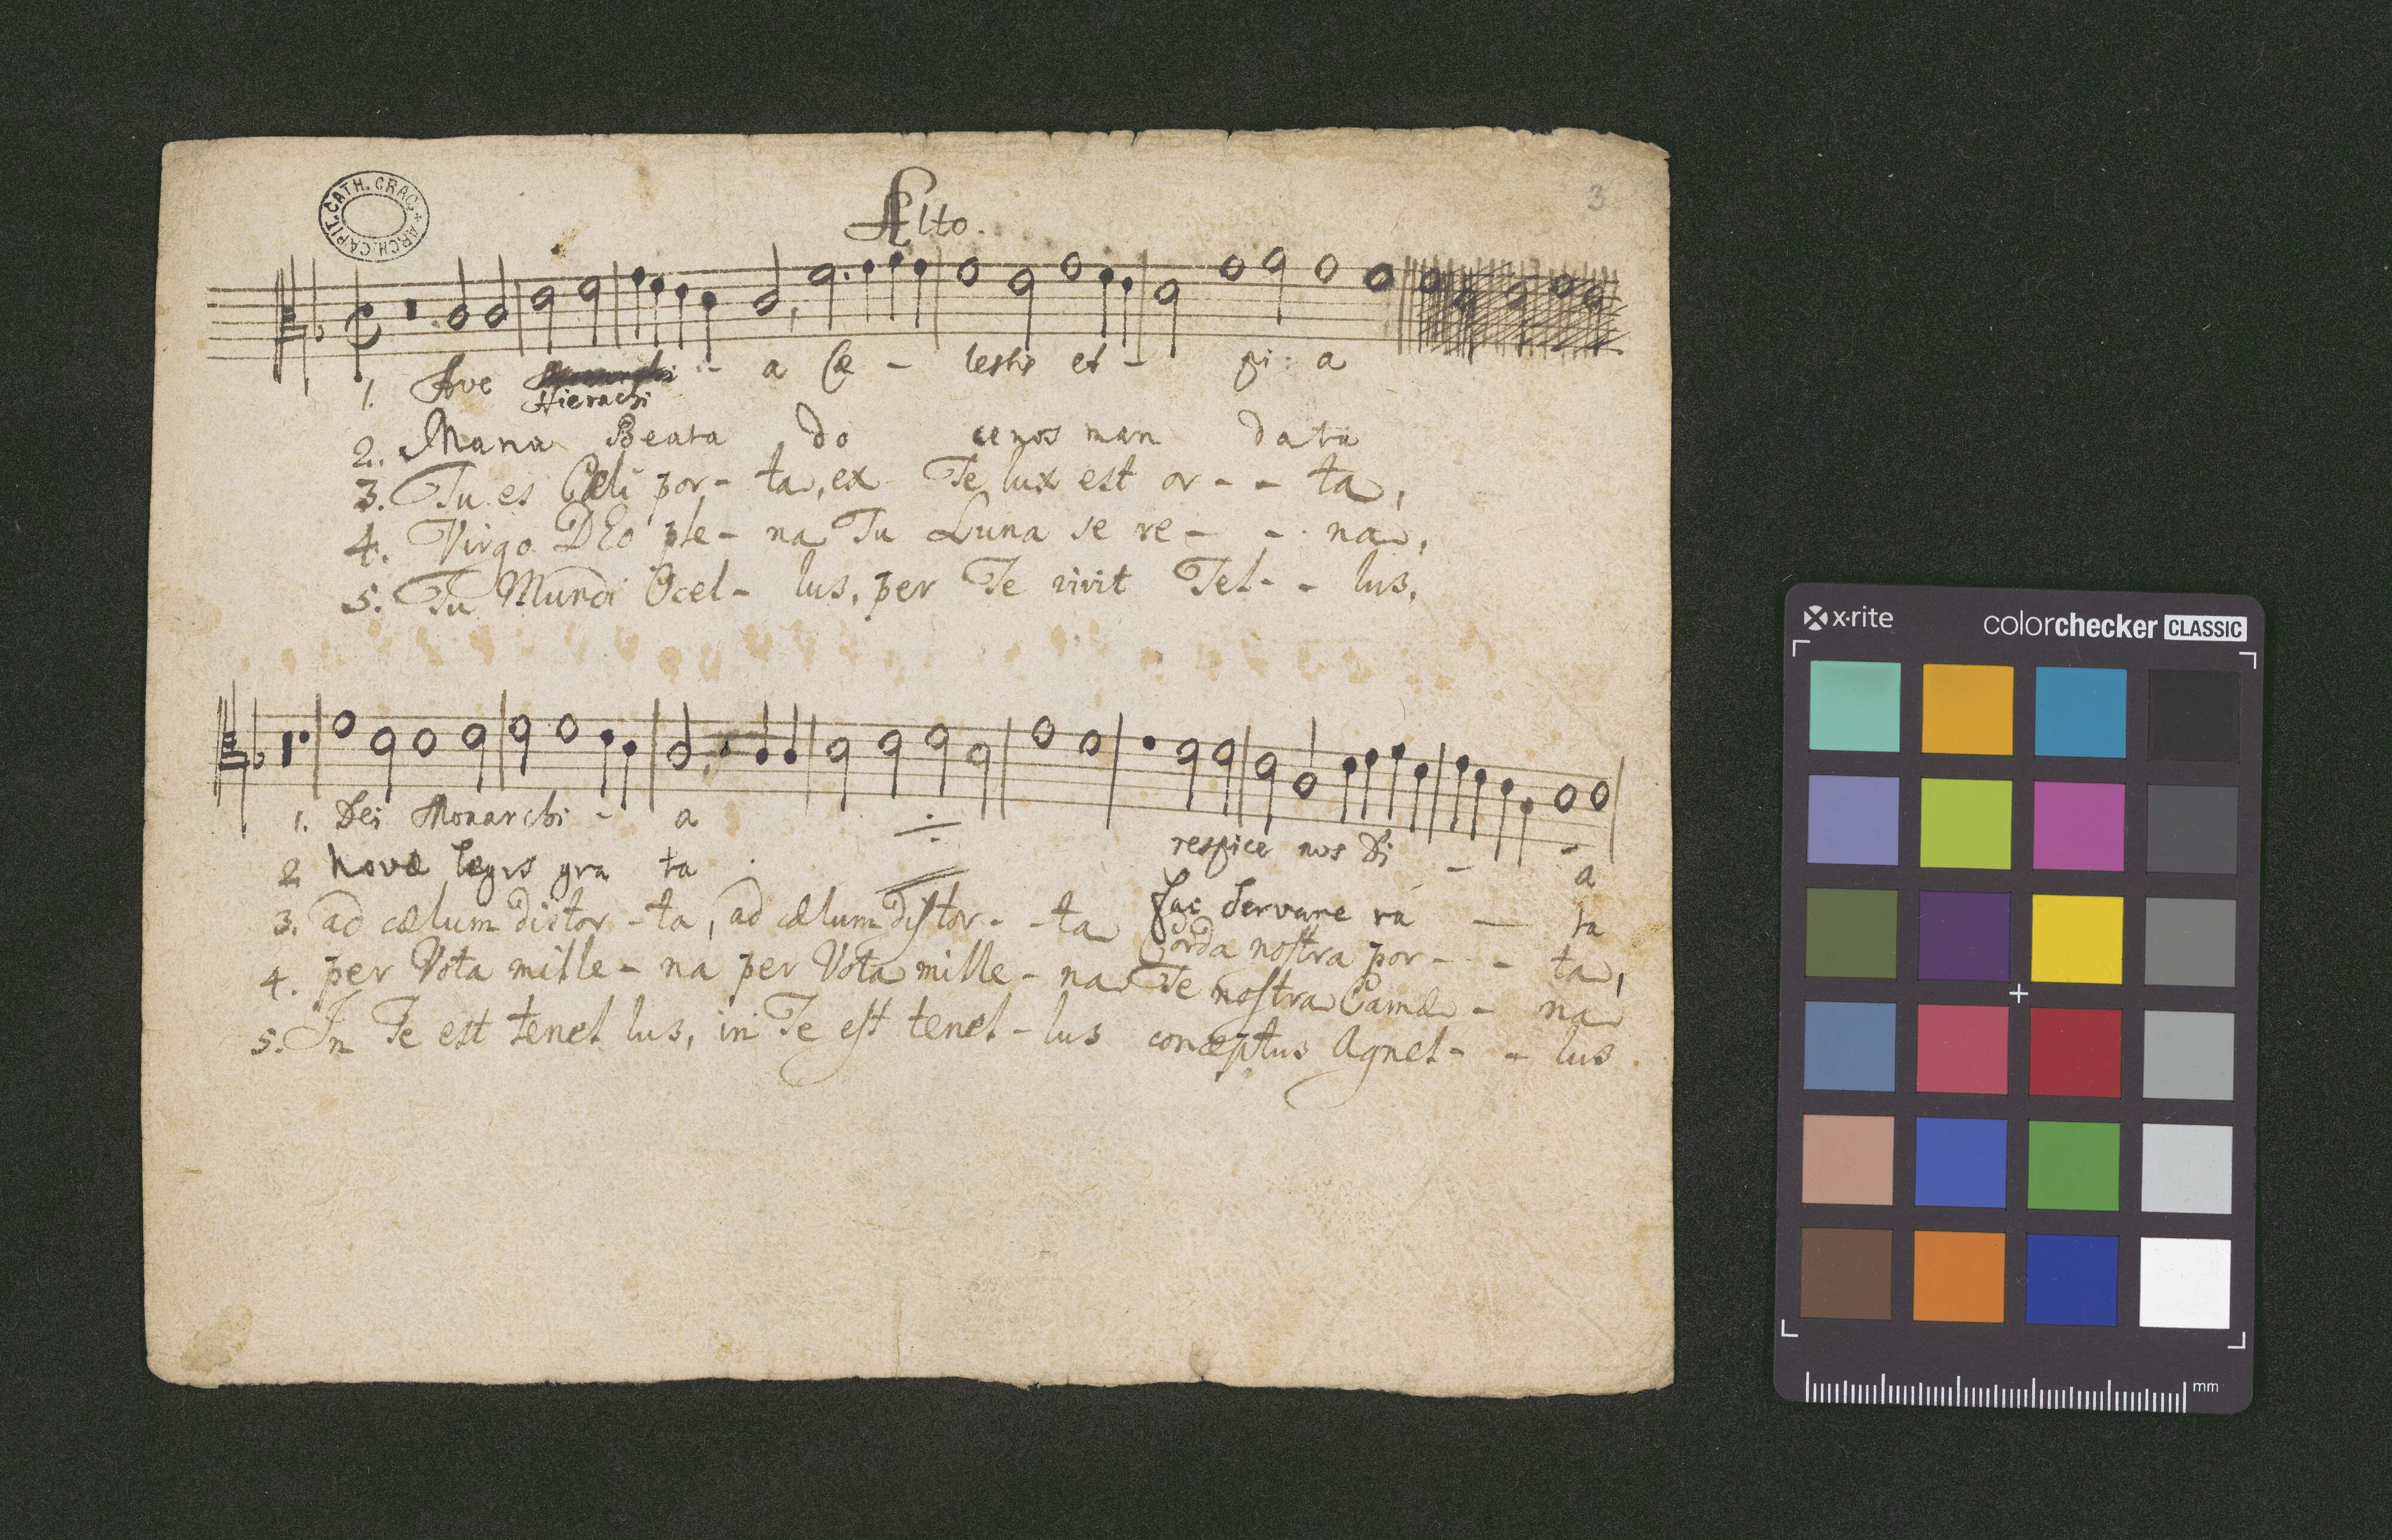 ARCH. CAPIT. CATH. CRAC.
3
Alto.
1. Ave - a Cæ - lestis et - pi : a
Hierachi
2. Maria Beata do ce nos man data
3. Tu es Cœli por - ta, ex Te lux est or - - ta,
4. Virgo DEo ple - na Tu Luna se re - - na,
5. Tu Mundi Ocel - lus, per Te vivit Tel - - lus,
1. Dei Monarchi - a respice nos Di - - a
2 novæ legis gra ta fac servare ra — ta
3. ad cælum distor - ta, ad cælum distor - - ta Corda nostra por - - ta,
4. per Vota mille - na per Vota mille - na Te nostra Camæ - na
5. In Te est tenel lus, in Te est tenel - lus conceptus Agnel - - lus
x·rite
colorchecker CLASSIC
mm